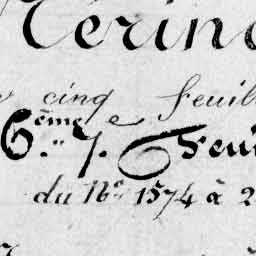 Mérino
cinq feuil
6.ème 7.e Feui
du N.o 1574 à 2